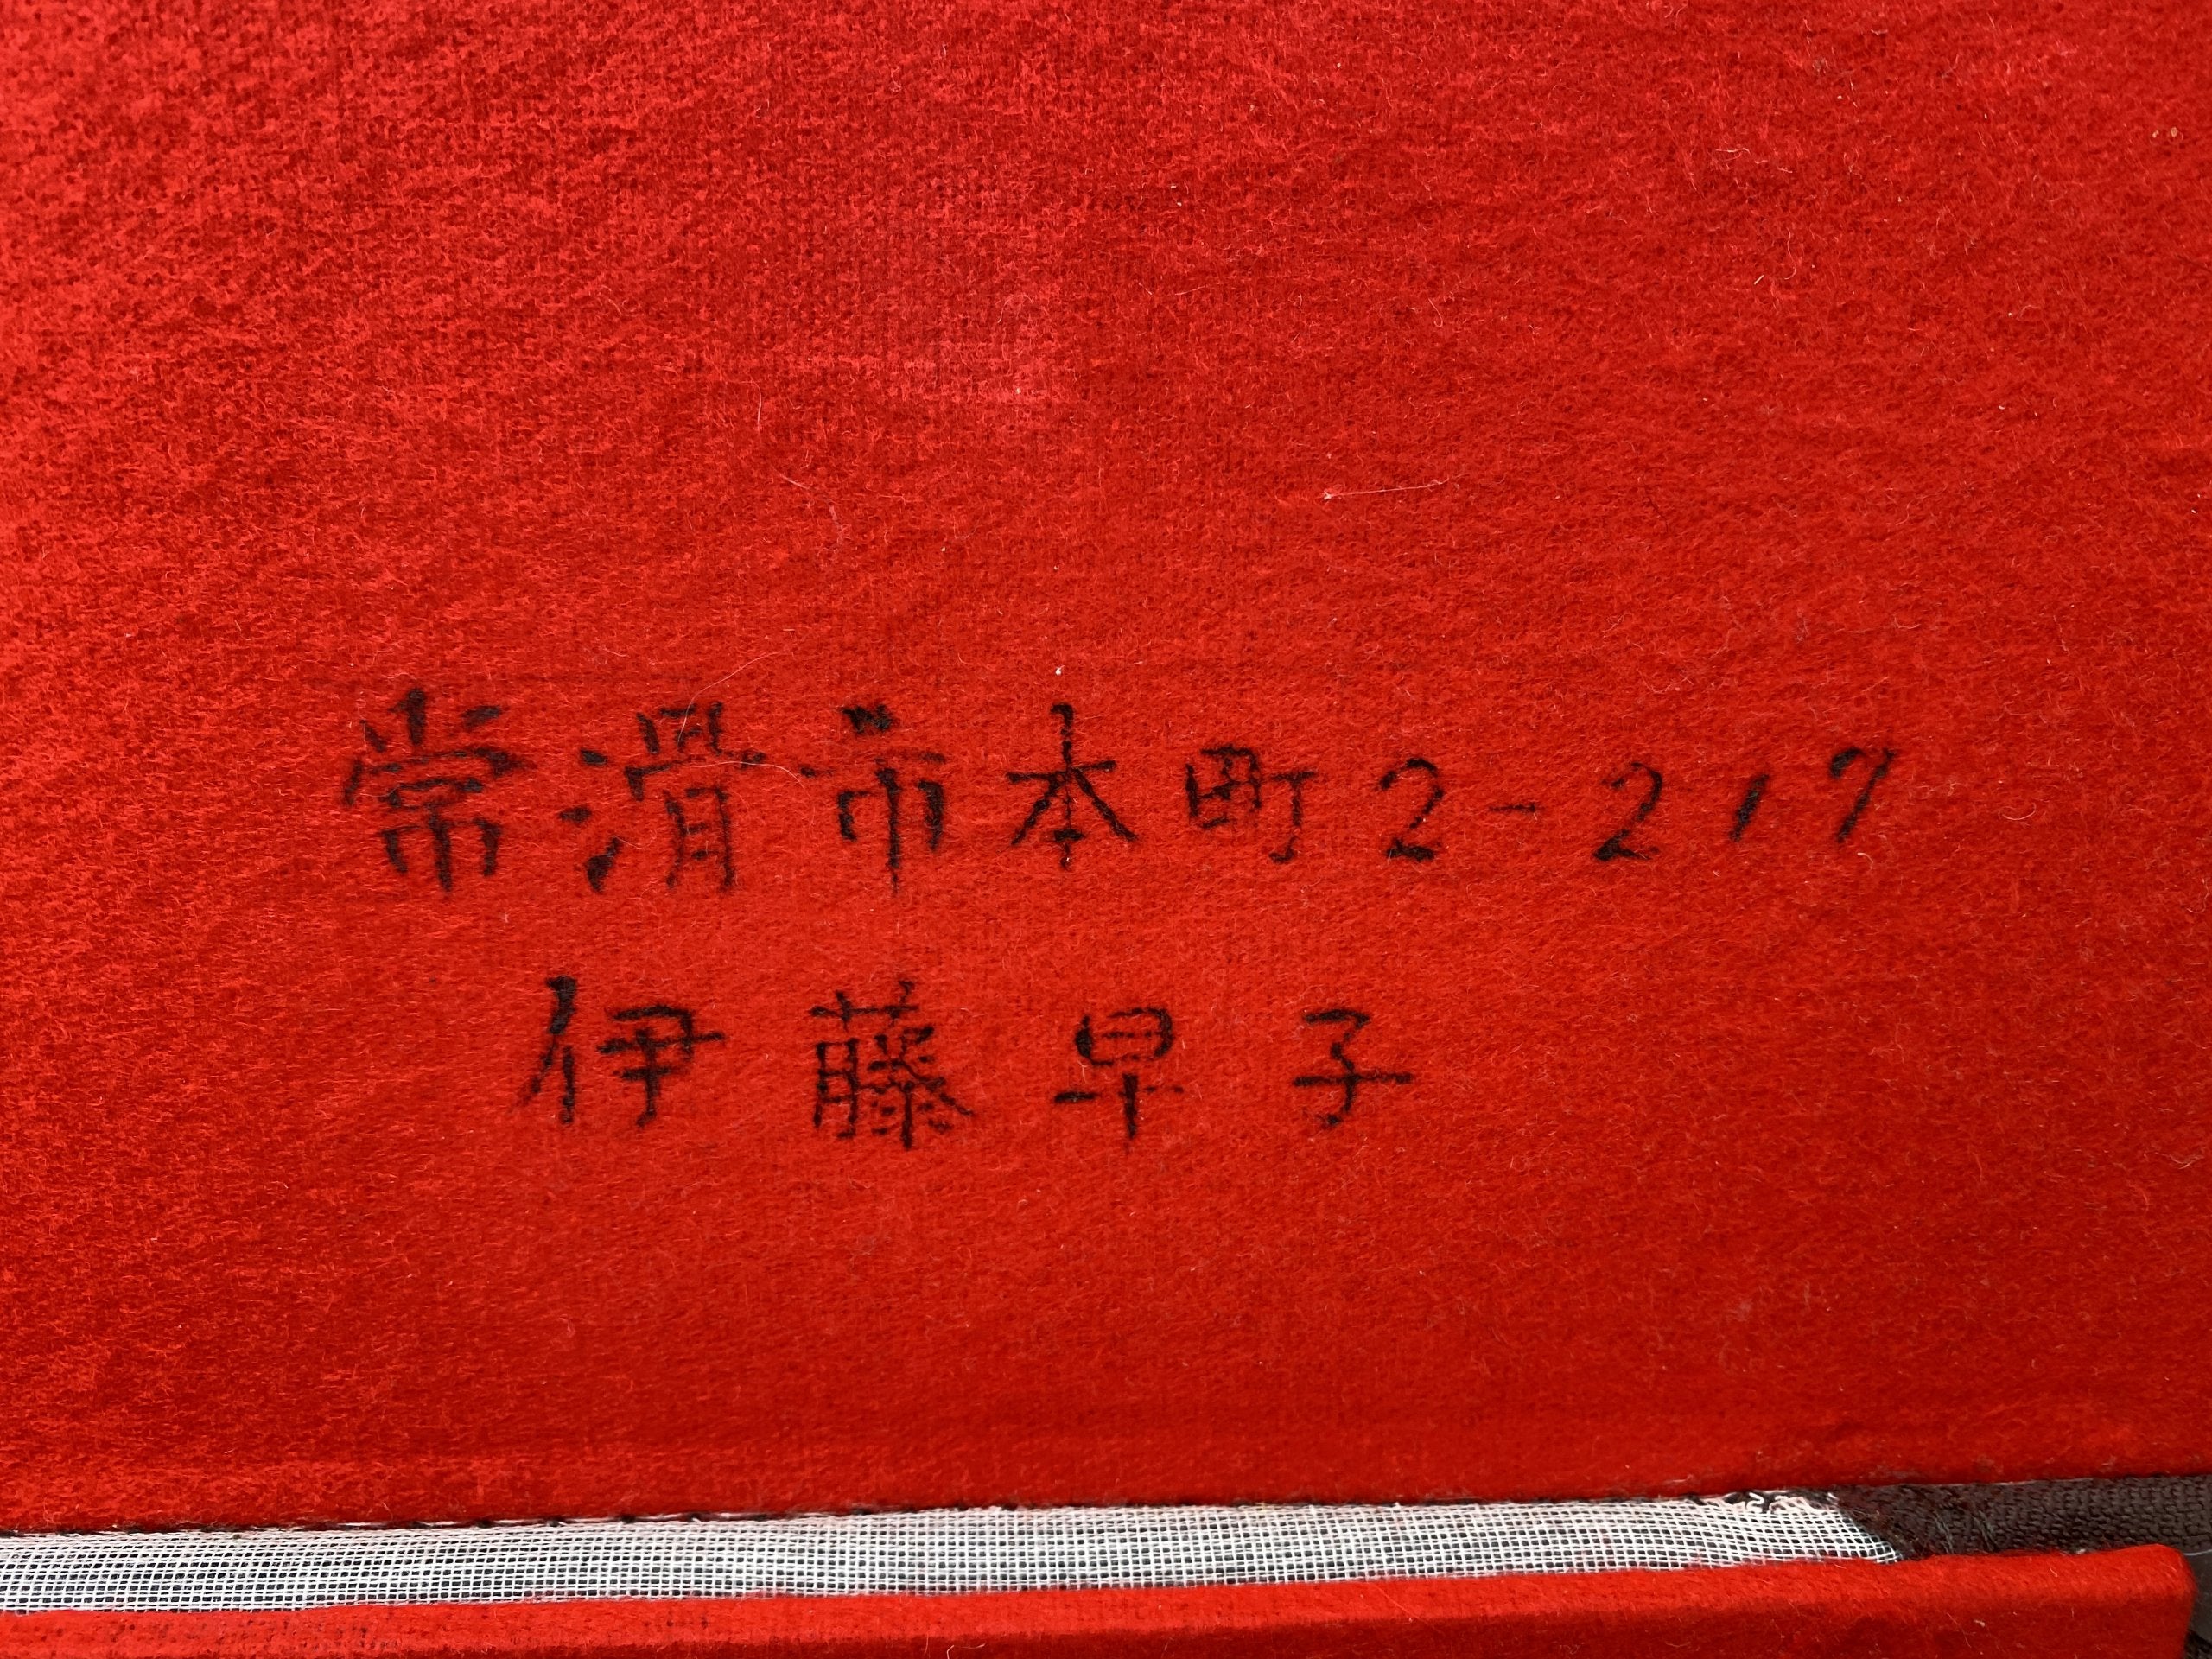 常滑市本町2-217
伊藤早子